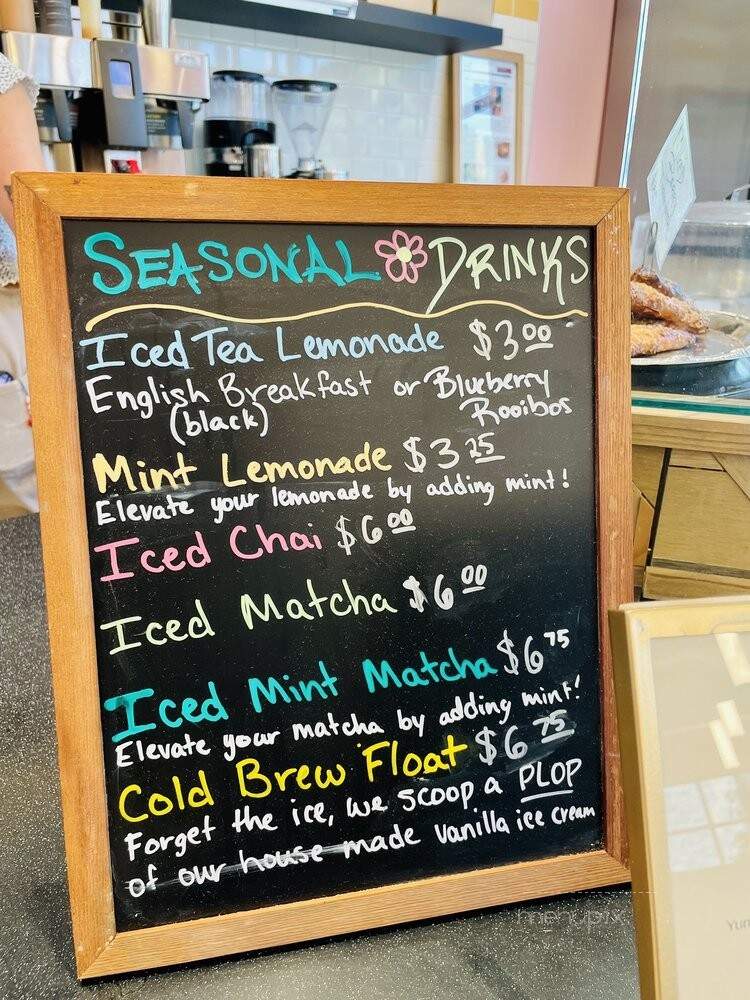 SEASONAL DRINKS
Iced Tea Lemonade $3.00
English Breakfast or Blueberry
(black) Rooibos
Mint Lemonade $3.25
Elevate your lemonade by adding mint!
Iced Chai $6.00
Iced Matcha $6.00
Iced Mint Matcha $6.75
Elevate your matcha by adding mint!
Cold Brew Float $6.75
Forget the ice, we scoop a PLOP
of our house made vanilla ice cream
menupix